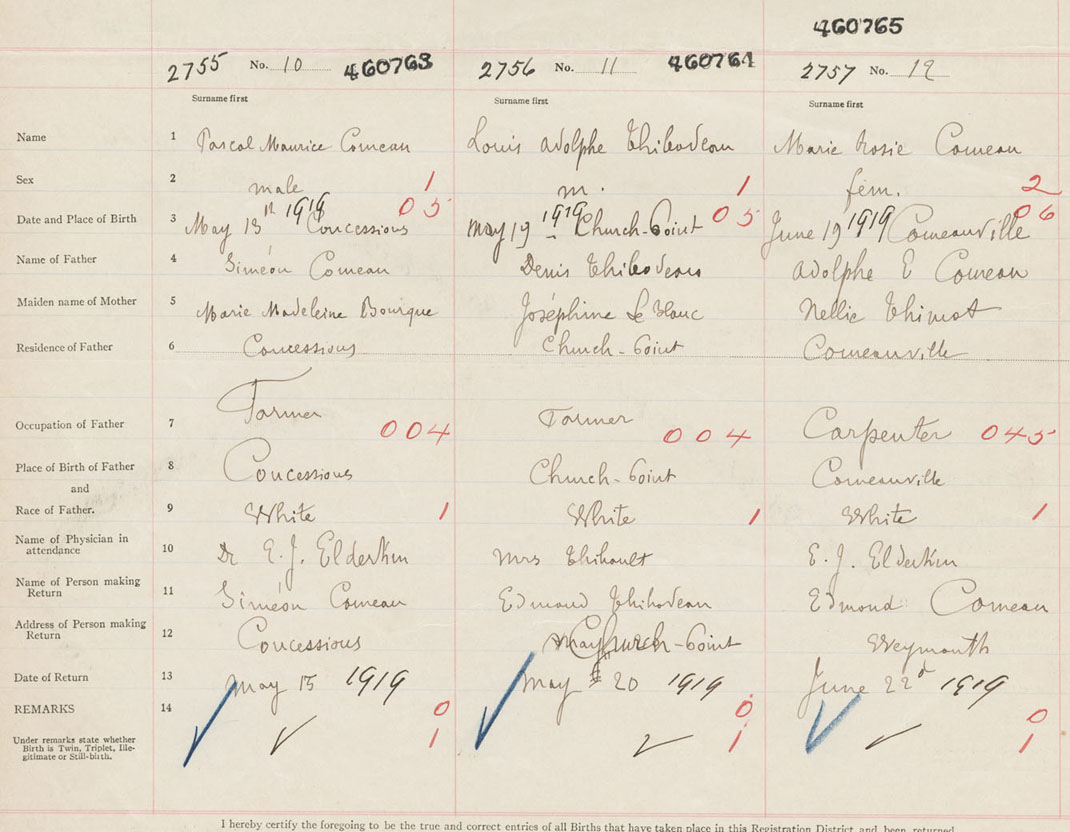 460765
2755 No. 10 460763 2756 No. 11 460764 2757 No. 12
Surname first Surname first Surname first
Name 1 Pascal Maurice Comeau Louis Adolphe Thibodeau Marie Rosie Comeau
Sex 2 male 1 m. 1 fém. 2
Date and Place of Birth 3 May 13th 1919 Concessions 05 May 19 1919 Church-Point 05 June 19 1919 Comeauville 06
Name of Father 4 Siméon Comeau Denis Thibodeau Adolphe E Comeau
Maiden name of Mother 5 Marie Madeleine Bourque Joséphine Le Blanc Nellie Thimot
Residence of Father 6 Concessions Church-Point Comeauville
Occupation of Father 7 Farmer 004 Farmer 004 Carpenter 045
Place of Birth of Father 8 Concessions Church-Point Comeauville
and
Race of Father. 9 White 1 White 1 White 1
Name of Physician in
attendance 10 Dr E. J. Elderkin Mrs Thibault E. J. Elderkin
Name of Person making
Return 11 Siméon Comeau Edmond Thibodeau Edmond Comeau
Address of Person making
Return 12 Concessions Church-Point Weymouth
Date of Return 13 May 15 1919 May 20 1919 June 22d 1919
REMARKS 14 0 0 0
Under remarks state whether
Birth is Twin, Triplet, Ille-
gitimate or Still-birth. 1 1 1
I hereby certify the foregoing to be the true and correct entries of all Births that have taken place in this Registration District and been returned